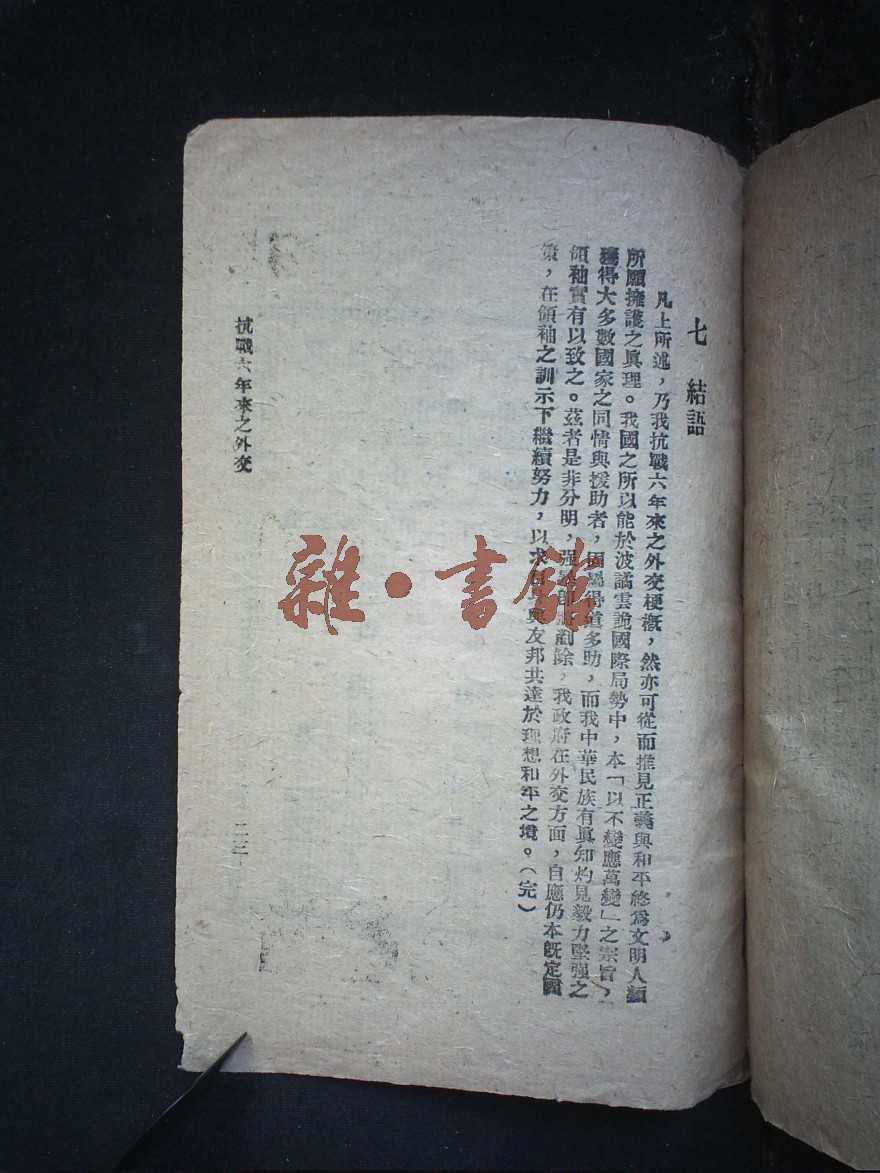 七 結語
凡上所述，乃我抗戰六年來之外交梗概，然亦可從而推見正義與和平終爲文明人類
所願擁護之眞理。我國之所以能於波譎雲詭國際局勢中，本「以不變應萬變」之宗旨，
獲得大多數國家之同情與援助者，固屬得道多助，而我中華民族有眞知灼見毅力堅强之
領袖實有以致之。茲者是非分明，强 剷除，我政府在外交方面，自應仍本既定國
策，在領袖之訓示下繼續努力，以求 與友邦共達於理想和平之境。（完）
抗戰六年來之外交
二三
雜·書館